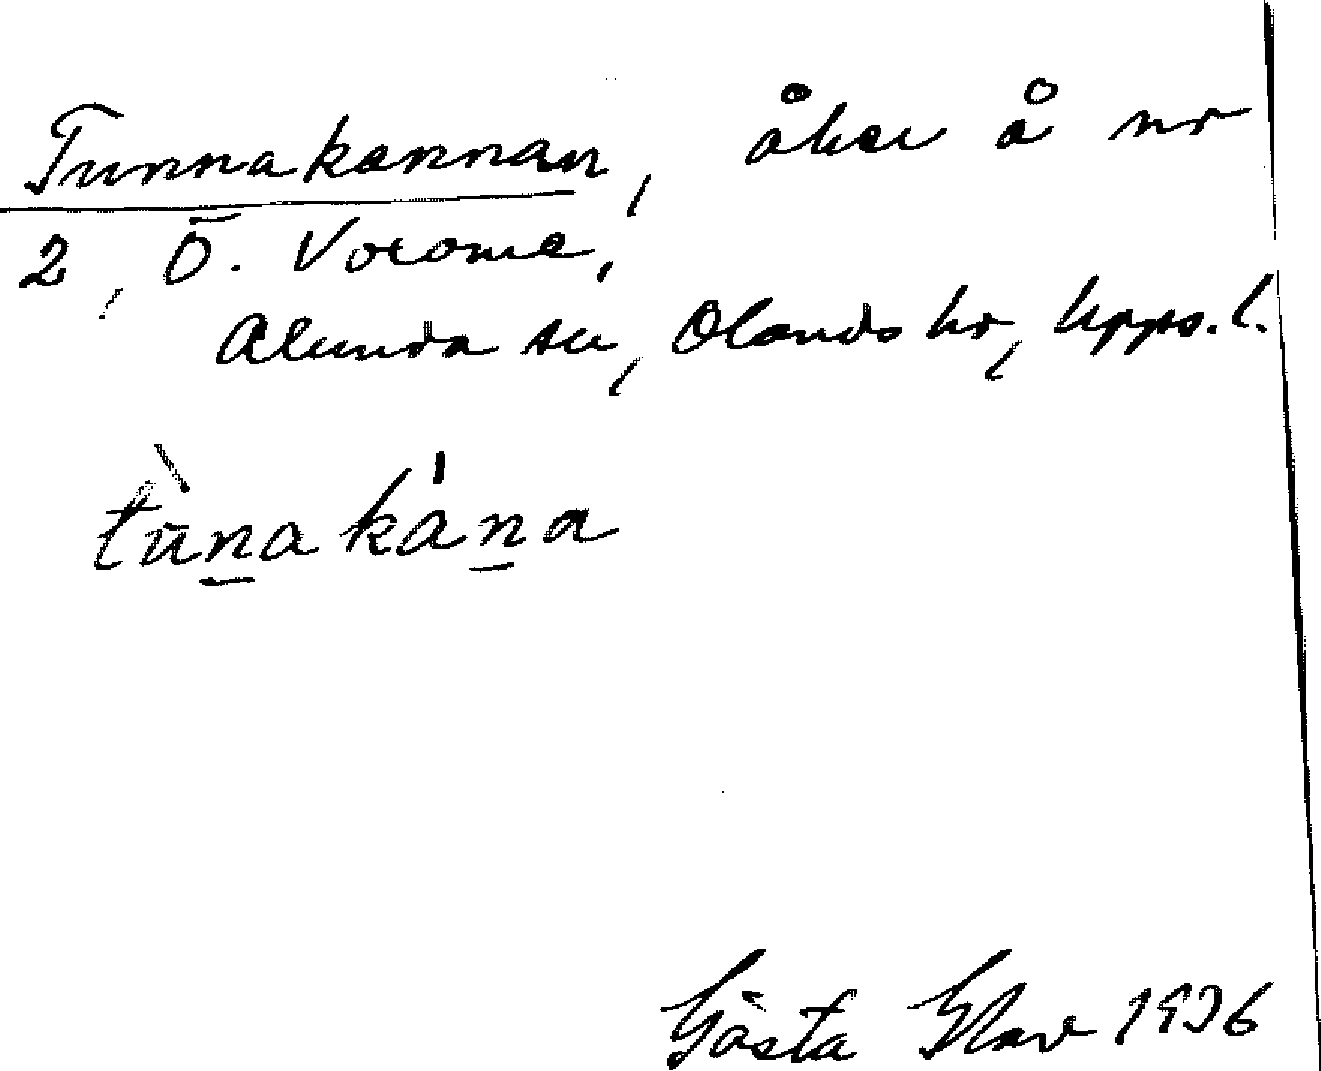 Tunnakannan, åker å nr
2, Ö. Vorome,
Alunda sn, Olands hr, Upps. l.
tùna kána
Gösta 1936